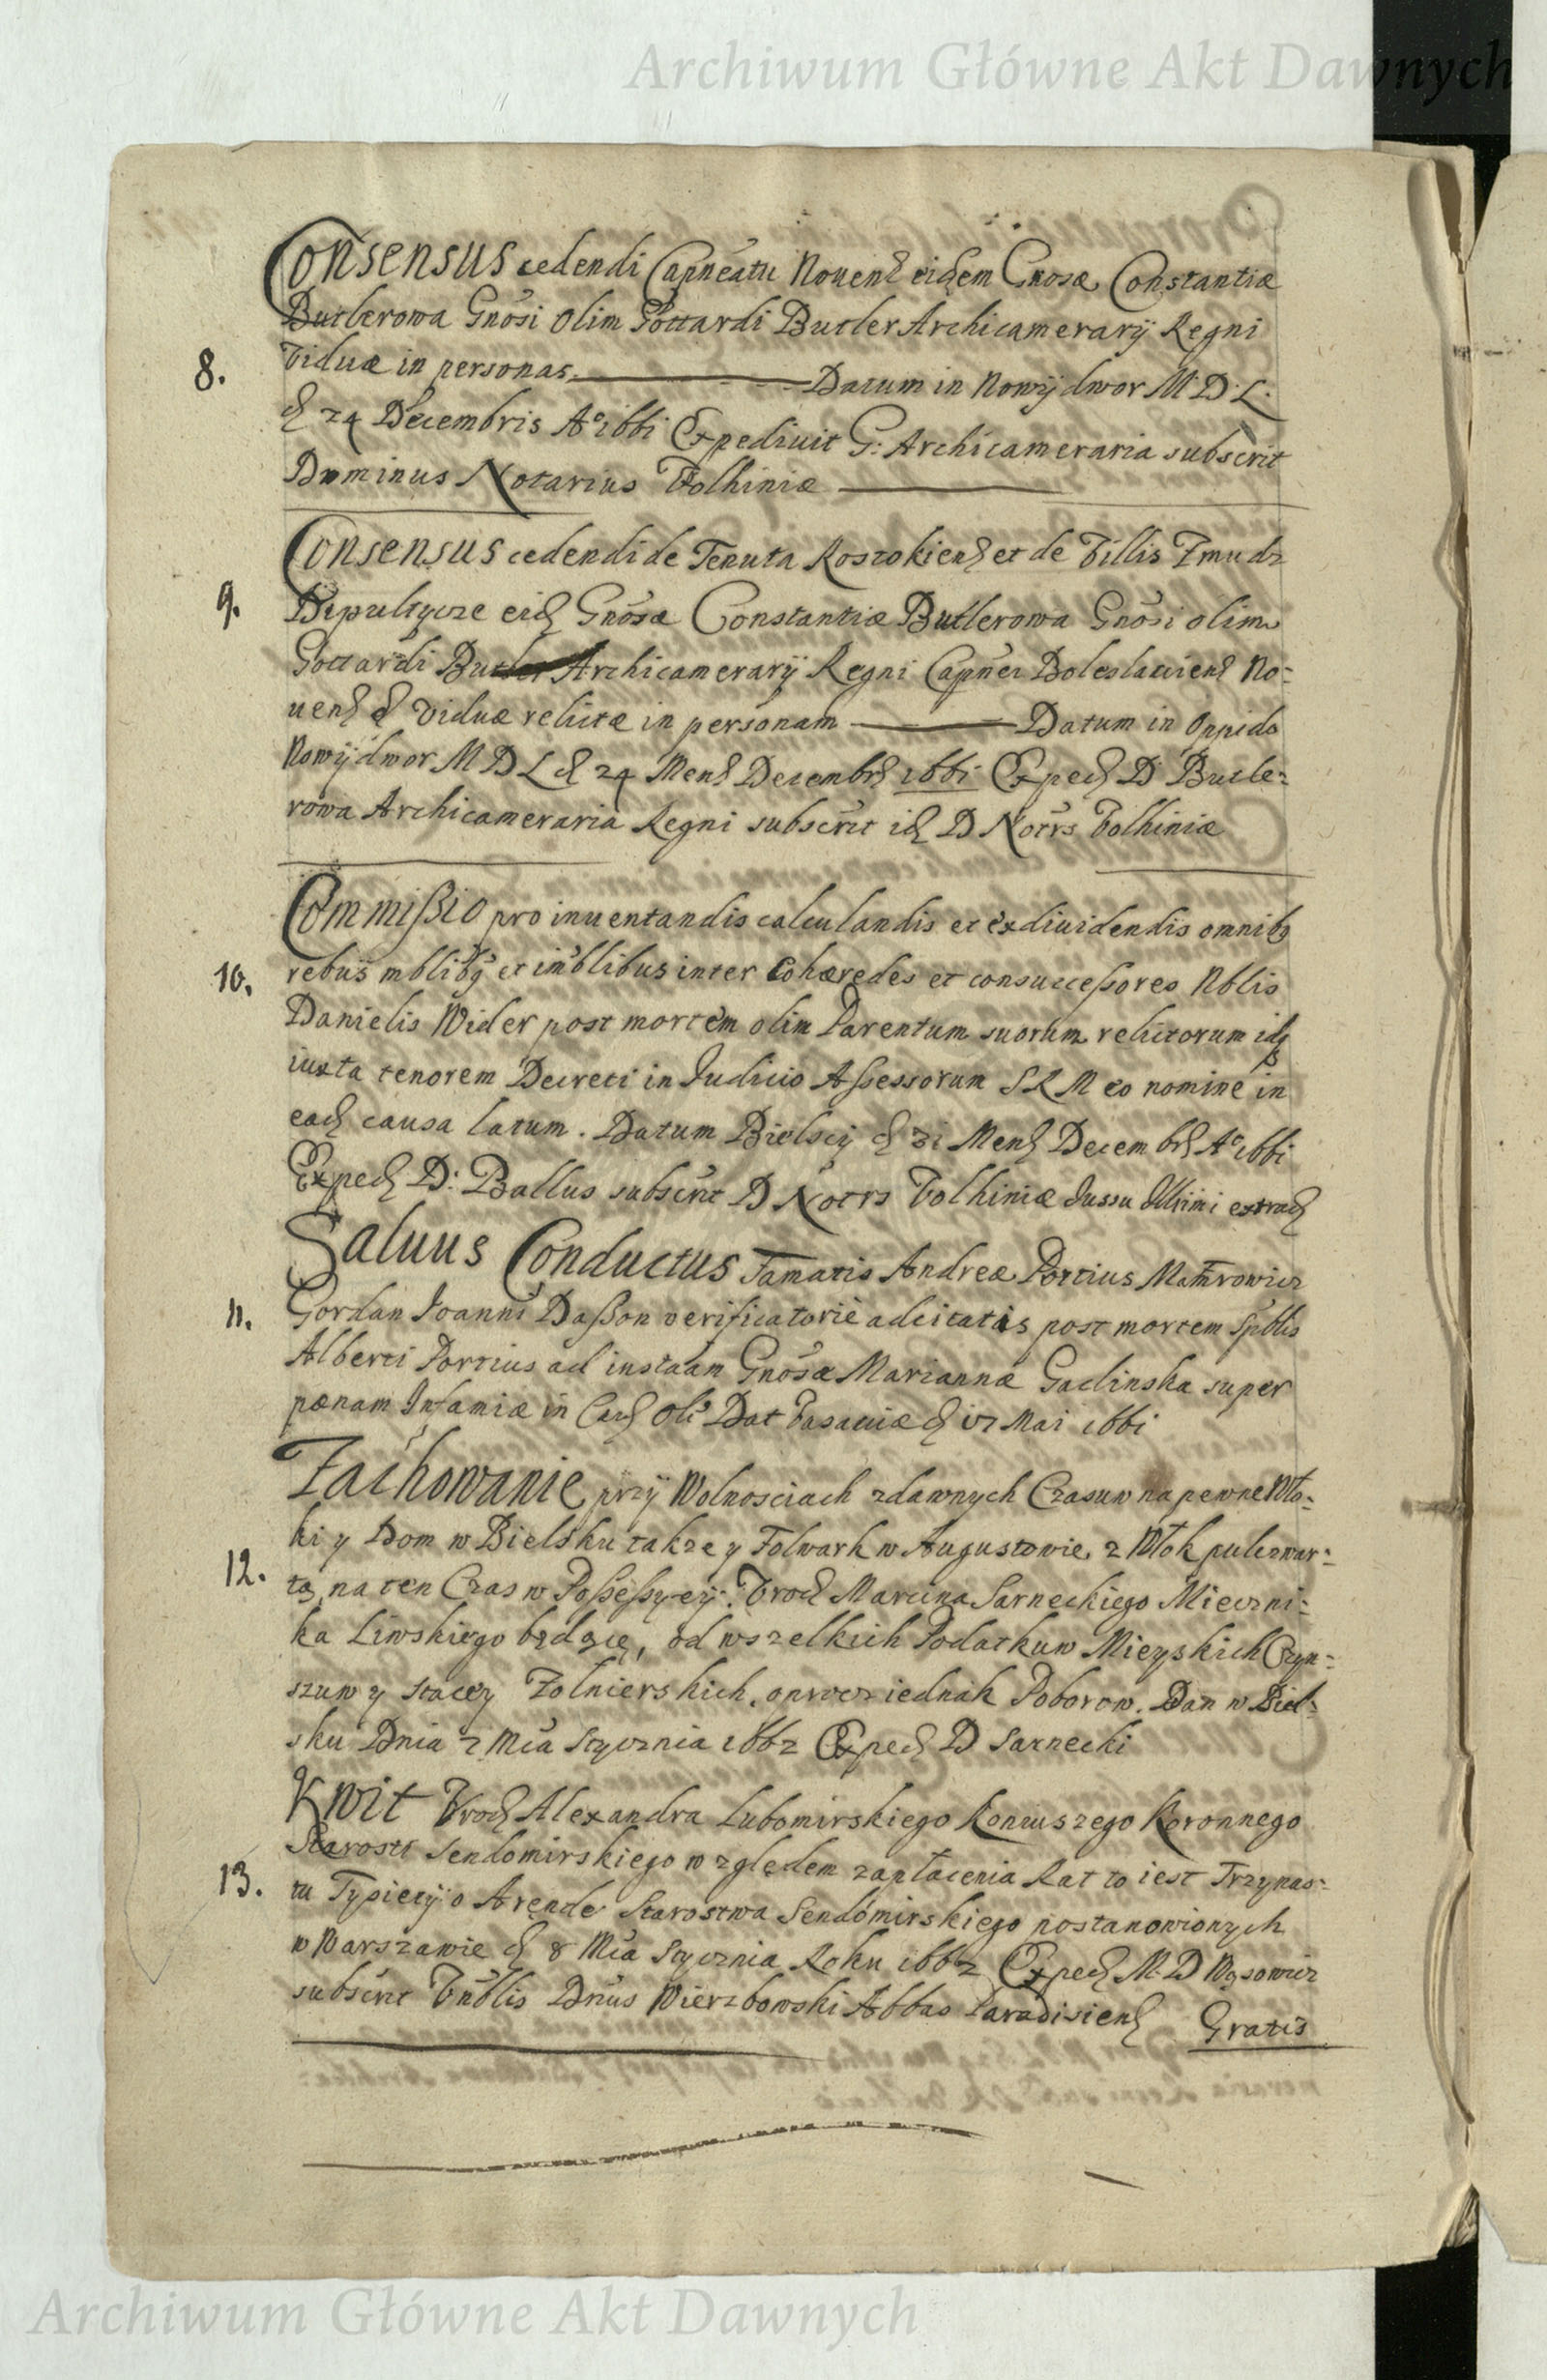 Archiwum Główne Akt Dawnych
Consensus cedendi Capneatu Nouens eidem Gnosæ Constantiæ
Butlerowa Gnosi olim Gottardi Butler Archicamerarij Regni
8. Viduæ in personas Datum in Nowÿdwor M. D. L.
d 24 Decembris Ao 1661 Expediuit G: Archicameraria subscrit
Dominus Notarius Volhiniæ
Consensus cedendi de Tenuta Rostokiens et de Villis Zmudz
9. Depultycze eid Gnosæ Constantiæ Butlerowa Gnosi olim
Gottardi Butler Archicamerarÿ Regni Capnei Boleslauiens No=
uens & Viduæ relictæ in personam Datum in Oppido
Nowÿdwor M D L d 24 Mens Decembrs 1661 Exped D Butle=
rowa Archicameraria Regni subscrit id D Notrs Volhiniæ
Commißio pro inuentandis calculandis et exdiuidendis omnibq
10. rebus mblibq et imblibus inter Cohæredes et consuccessores Nblis
Danielis Wider post mortem olim Parentum suorum relictorum idq
iuxta tenorem Decreti in Judicio Assessorum S R M eo nomine in
ead causa latum. Datum Bielscÿ d 31 Mens Decembrs Ao 1661
Exped D: Ballus subscrit D Notrs Volhiniæ Jussu Illrimi extrad
Saluus Conductus Famatis Andreæ Portius
11. Gordan Joannis Daßon verificatorie adcitatis post mortem Spblis
Alberti Portius ad instaam Gnosæ Mariannæ Gadinska super
pænam Infamiæ in Dat Varsauiæ d 17 Mai 1661
Zachowanie przÿ Wolnosciach zdawnych Czasuw na pewne Wło=
ki y Dom w Bielsku takze y Folwark w Augustowie z Włok pulczwar=
12. ta na ten Czas w Possessyeÿ. Vrod Marcina Sarneckiego Mieczni=
ka Liwskiego będące, od wszelkich Podatkuw Mieyskich Czyn=
szuw y Stacey Zolnierskich, oprocz iednak Poborow. Dan w Biel=
sku Dnia 2 Mca Stycznia 1662 Exped D Sarnecki
Kwit Vrod Alexandra Lubomirskiego Koniuszego Koronnego
Starosti Sendomirskiego w zgledem zapłacenia Rat to iest Trzynas=
13. tu Tysiecÿ o Arende Starostwa Sendomirskiego postanowionych
w Warszawie d 8 Mca Stycznia Roku 1662 Exped M. D Wąsowicz
subscrit Vnblis Dnus Wierzbowski Abbas Paradisiens Gratis
Archiwum Główne Akt Dawnych